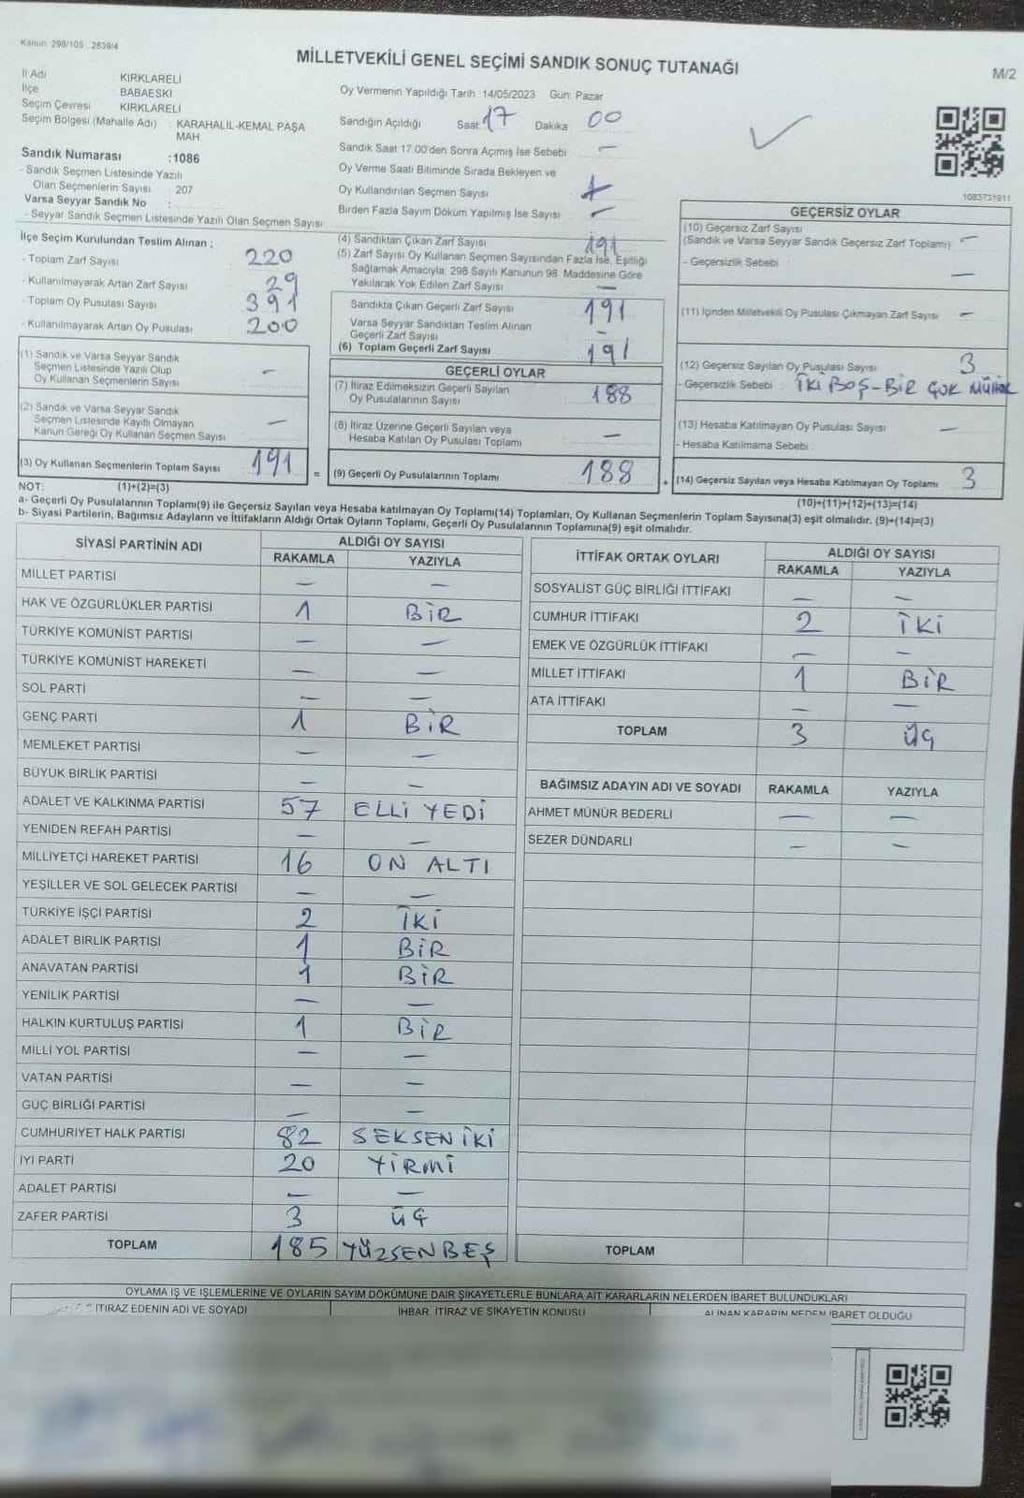 Kanun: 298/105 2839/4
MİLLETVEKİLİ GENEL SEÇİMİ SANDIK SONUÇ TUTANAĞI
M/2
İl Adı KIRKLARELİ
İlçe BABAESKİ
Seçim Çevresi KIRKLARELİ
Seçim Bölgesi (Mahalle Adı) : KARAHALİL-KEMAL PAŞA MAH.
Sandık Numarası :1086
- Sandık Seçmen Listesinde Yazılı
Olan Seçmenlerin Sayısı 207
Varsa Seyyar Sandık No :
- Seyyar Sandık Seçmen Listesinde Yazılı Olan Seçmen Sayısı
Oy Vermenin Yapıldığı Tarih :14/05/2023 Gün: Pazar
Sandığın Açıldığı Saat 17 Dakika 00
Sandık Saat 17.00'den Sonra Açımış İse Sebebi —
Oy Verme Saati Bitiminde Sırada Bekleyen ve
Oy Kullandırılan Seçmen Sayısı
Birden Fazla Sayım Döküm Yapılmış İse Sayısı —
1083731911
İlçe Seçim Kurulundan Teslim Alınan ;
- Toplam Zarf Sayısı 220
- Kullanılmayarak Artan Zarf Sayısı 29
- Toplam Oy Pusulası Sayısı 391
- Kullanılmayarak Artan Oy Pusulası 200
(1) Sandık ve Varsa Seyyar Sandık
Seçmen Listesinde Yazılı Olup
Oy Kullanan Seçmenlerin Sayısı —
(2) Sandık ve Varsa Seyyar Sandık
Seçmen Listesinde Kayıtlı Olmayan
Kanun Gereği Oy Kullanan Seçmen Sayısı —
(3) Oy Kullanan Seçmenlerin Toplam Sayısı 191
(4) Sandıktan Çıkan Zarf Sayısı 191
(5) Zarf Sayısı Oy Kullanan Seçmen Sayısından Fazla İse, Eşitliği
Sağlamak Amacıyla; 298 Sayılı Kanunun 98. Maddesine Göre
Yakılarak Yok Edilen Zarf Sayısı —
Sandıkta Çıkan Geçerli Zarf Sayısı 191
Varsa Seyyar Sandıktan Teslim Alınan
Geçerli Zarf Sayısı -
(6) Toplam Geçerli Zarf Sayısı 191
GEÇERLİ OYLAR
(7) İtiraz Edilmeksizin Geçerli Sayılan
Oy Pusulalarının Sayısı 188
(8) İtiraz Üzerine Geçerli Sayılan veya
Hesaba Katılan Oy Pusulası Toplamı —
= (9) Geçerli Oy Pusulalarının Toplamı 188
GEÇERSİZ OYLAR
(10) Geçersiz Zarf Sayısı
(Sandık ve Varsa Seyyar Sandık Geçersiz Zarf Toplamı) —
- Geçersizlik Sebebi : —
(11) İçinden Milletvekili Oy Pusulası Çıkmayan Zarf Sayısı —
(12) Geçersiz Sayılan Oy Pusulası Sayısı 3
- Geçersizlik Sebebi : İKİ BOŞ-BİR ÇOK MÜHÜR
(13) Hesaba Katılmayan Oy Pusulası Sayısı —
- Hesaba Katılmama Sebebi :
+ (14) Geçersiz Sayılan veya Hesaba Katılmayan Oy Toplamı 3
NOT: (1)+(2)=(3) (10)+(11)+(12)+(13)=(14)
a- Geçerli Oy Pusulalarının Toplamı(9) ile Geçersiz Sayılan veya Hesaba katılmayan Oy Toplamı(14) Toplamları, Oy Kullanan Seçmenlerin Toplam Sayısına(3) eşit olmalıdır. (9)+(14)=(3)
b- Siyasi Partilerin, Bağımsız Adayların ve İttifakların Aldığı Ortak Oyların Toplamı, Geçerli Oy Pusulalarının Toplamına(9) eşit olmalıdır.
SİYASİ PARTİNİN ADI ALDIĞI OY SAYISI
RAKAMLA YAZIYLA
MİLLET PARTİSİ — —
HAK VE ÖZGÜRLÜKLER PARTİSİ 1 BİR
TÜRKİYE KOMÜNİST PARTİSİ — —
TÜRKİYE KOMÜNİST HAREKETİ — —
SOL PARTİ — —
GENÇ PARTİ 1 BİR
MEMLEKET PARTİSİ — —
BÜYÜK BİRLİK PARTİSİ — —
ADALET VE KALKINMA PARTİSİ 57 ELLİ YEDİ
YENİDEN REFAH PARTİSİ — —
MİLLİYETÇİ HAREKET PARTİSİ 16 ON ALTI
YEŞİLLER VE SOL GELECEK PARTİSİ — —
TÜRKİYE İŞÇİ PARTİSİ 2 İKİ
ADALET BİRLİK PARTİSİ 1 BİR
ANAVATAN PARTİSİ 1 BİR
YENİLİK PARTİSİ — —
HALKIN KURTULUŞ PARTİSİ 1 BİR
MİLLİ YOL PARTİSİ — —
VATAN PARTİSİ — —
GÜÇ BİRLİĞİ PARTİSİ — —
CUMHURİYET HALK PARTİSİ 82 SEKSEN İKİ
İYİ PARTİ 20 YİRMİ
ADALET PARTİSİ — —
ZAFER PARTİSİ 3 ÜÇ
TOPLAM 185 YÜZSENBEŞ
İTTİFAK ORTAK OYLARI ALDIĞI OY SAYISI
RAKAMLA YAZIYLA
SOSYALİST GÜÇ BİRLİĞİ İTTİFAKI — —
CUMHUR İTTİFAKI 2 İKİ
EMEK VE ÖZGÜRLÜK İTTİFAKI — —
MİLLET İTTİFAKI 1 BİR
ATA İTTİFAKI — —
TOPLAM 3 ÜÇ
BAĞIMSIZ ADAYIN ADI VE SOYADI RAKAMLA YAZIYLA
AHMET MÜNÜR BEDERLİ — —
SEZER DÜNDARLI — —
TOPLAM
OYLAMA İŞ VE İŞLEMLERİNE VE OYLARIN SAYIM DÖKÜMÜNE DAİR ŞİKAYETLERLE BUNLARA AİT KARARLARIN NELERDEN İBARET BULUNDUKLARI
İTİRAZ EDENİN ADI VE SOYADI İHBAR, İTİRAZ VE ŞİKAYETİN KONUSU ALINAN KARARIN NEDEN İBARET OLDUĞU